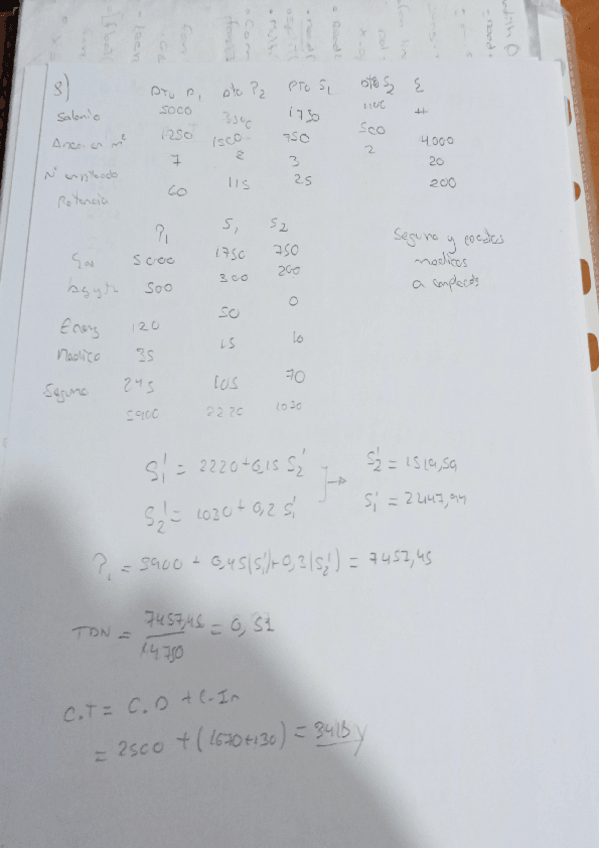 8) Dto P1 Dto P2 Dto S1 Dto S2 Σ
Salario 5000 3500 1750 1100 #
Area en m² 1250 1500 750 500 4000
Nº empleado 7 8 3 2 20
Potencia 60 115 25 200
P1 S1 S2
5000 1750 750
500 300 200
Energ 120 50 0
Medico 35 15 10
Seguro 245 105 70
5900 2220 1030
Seguro y
medicos
a
S1' = 2220 + 0,15 S2'
S2' = 1030 + 0,2 S1'
S2' = 1519,59
S1' = 2447,94
P1 = 5900 + 0,45(S1') + 0,3(S2') = 7457,45
TDN = 7457,45 / 14750 = 0,51
C.T = C.D + C.In
= 2500 +